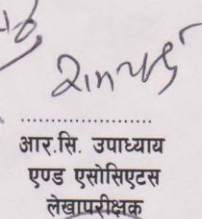 ....................
आर.सि. उपाध्याय
एण्ड एसोसिएटस
लेखापरीक्षक